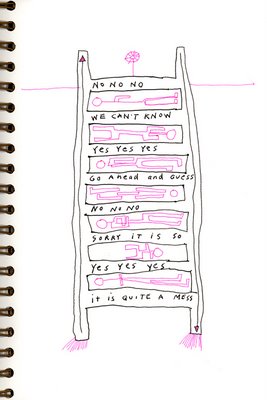 NO NO NO
WE CAN'T KNOW
Yes Yes Yes
GO AHeaD and GUESS
NO NO NO
SORRY IT IS SO
Yes Yes Yes
it is QUITE A MESS